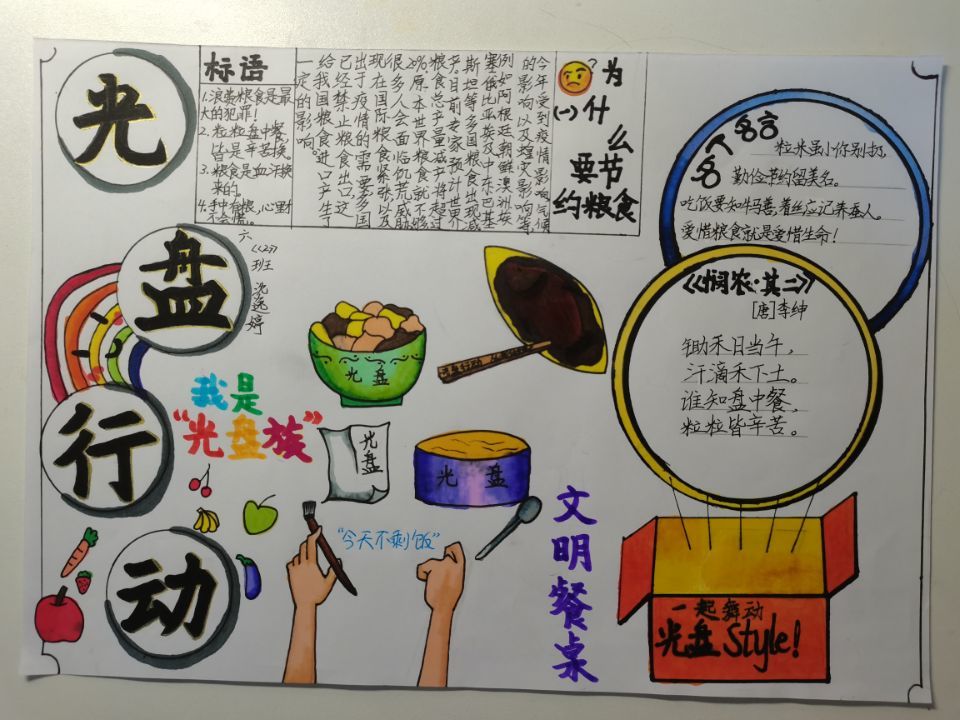 光
盘
行
动
标语
1.浪费粮食是最
大的犯罪！
2.粒粒盘中餐，
皆是辛苦换。
3.粮食是血汗换
来的。
4.手中有粮，心里
不会慌。
六
《2》
班
婷
为
(一)什
么
要节
约粮食
今年受到疫情影响，气候
的影响以及蝗灾影响等
例如阿根廷、朝鲜、澳洲、埃
塞俄比亚、埃及中东、巴基
斯坦等多国粮食出现减
产，目前专家预计世界
粮食总产量减产将超过
20%，原本世界粮食就不够
很多人会面临饥荒威胁
现在国际粮食紧张，以及
出于疫情的需要，多国
已经禁止粮食出口，这
给我国粮食进口产生了
一定的影响。
名人名言
粒米虽小你别扔，
勤俭节约留美名。
吃饭要知牛马善，着丝应记养蚕人。
爱惜粮食就是爱惜生命！
《悯农·其二》
[唐]李绅
锄禾日当午，
汗滴禾下土。
谁知盘中餐，
粒粒皆辛苦。
光盘
我是
“光盘族”
光盘
光盘
“今天不剩饭”
文明餐桌
一起舞动
光盘Style!